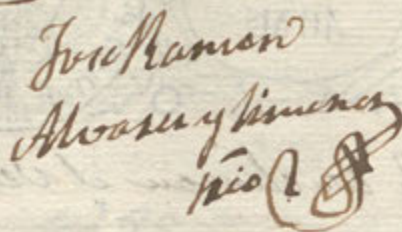 Jose Ramon
Alvarez y Ximenez